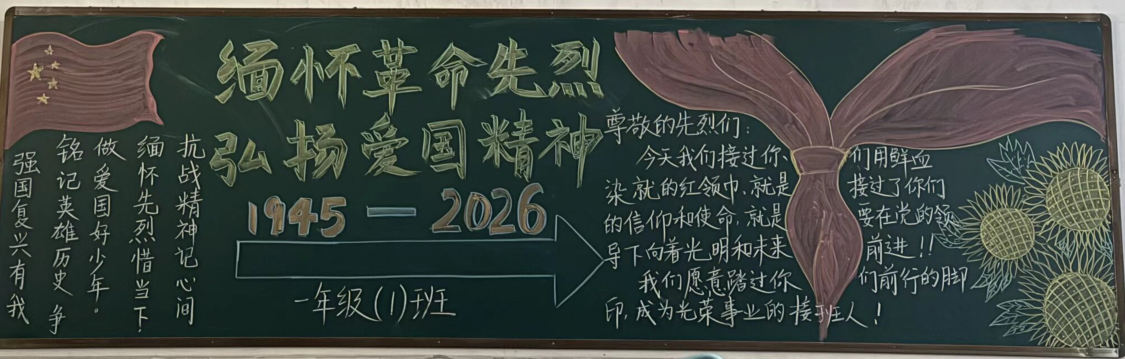 缅怀革命先烈
弘扬爱国精神
1945—2026
一年级(1)班
抗战精神记心间
缅怀先烈惜当下
做爱国好少年。
铭记英雄历史 争
强国复兴有我
尊敬的先烈们:
今天我们接过你们用鲜血
染就的红领巾,就是接过了你们
的信仰和使命,就是要在党的领
导下向着光明和未来前进!!
我们愿意踏过你们前行的脚
印,成为光荣事业的接班人!